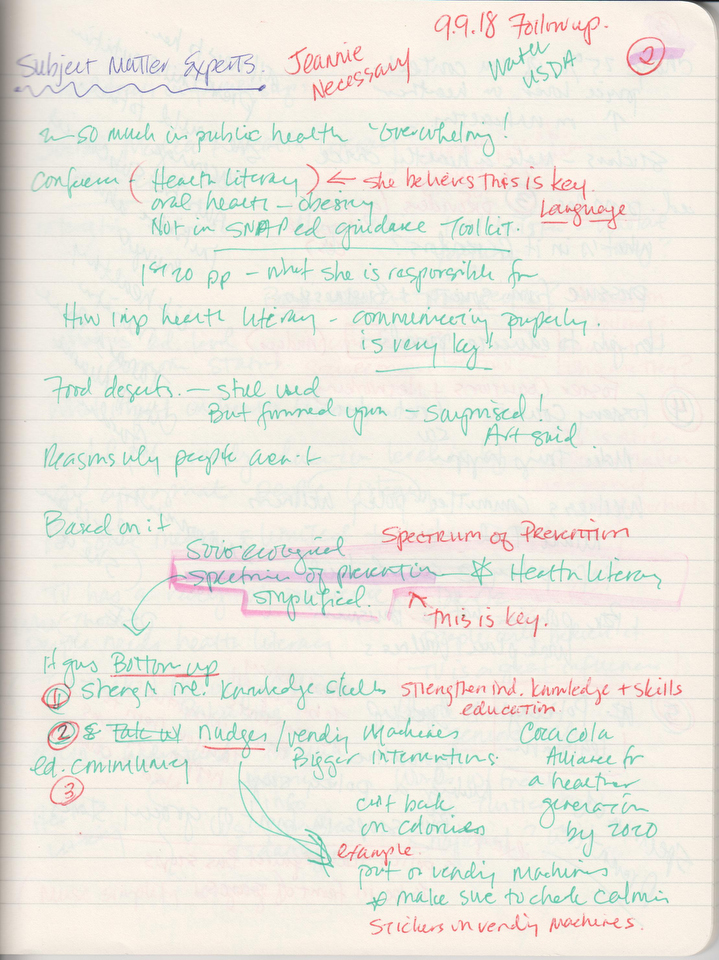 9.9.18 Followup.
Subject Matter Experts.
Jeannie
Necessary
Water
USDA
2
so much in public health "overwhelmg!
Health literacy) ← she believes This is key.
oral health - obesity
Language
Not in SNAP ed guidance Toolkit.
1st 20 pp - what she is responsible for
How imp health literacy - communicating properly.
is very key!
Food deserts. - still used
But frowned upon - Surprised!
Art said.
Reasons why people
Based on it
Spectrum of Prevention
Socioecological
spectrum of prevention - * Health Literacy
simplified.
This is key.
It goes Bottom up
1 Strength ind. Knowledge skills
strengthen ind. knowledge + skills
education
2 nudges/vending Machines
Coca cola
ed. community
Bigger interventions.
Alliance for
a healthier
3
generation
by 2020
cut back
on calories
example.
put on vending machines
* make sure to check calories
stickers on vending Machines.